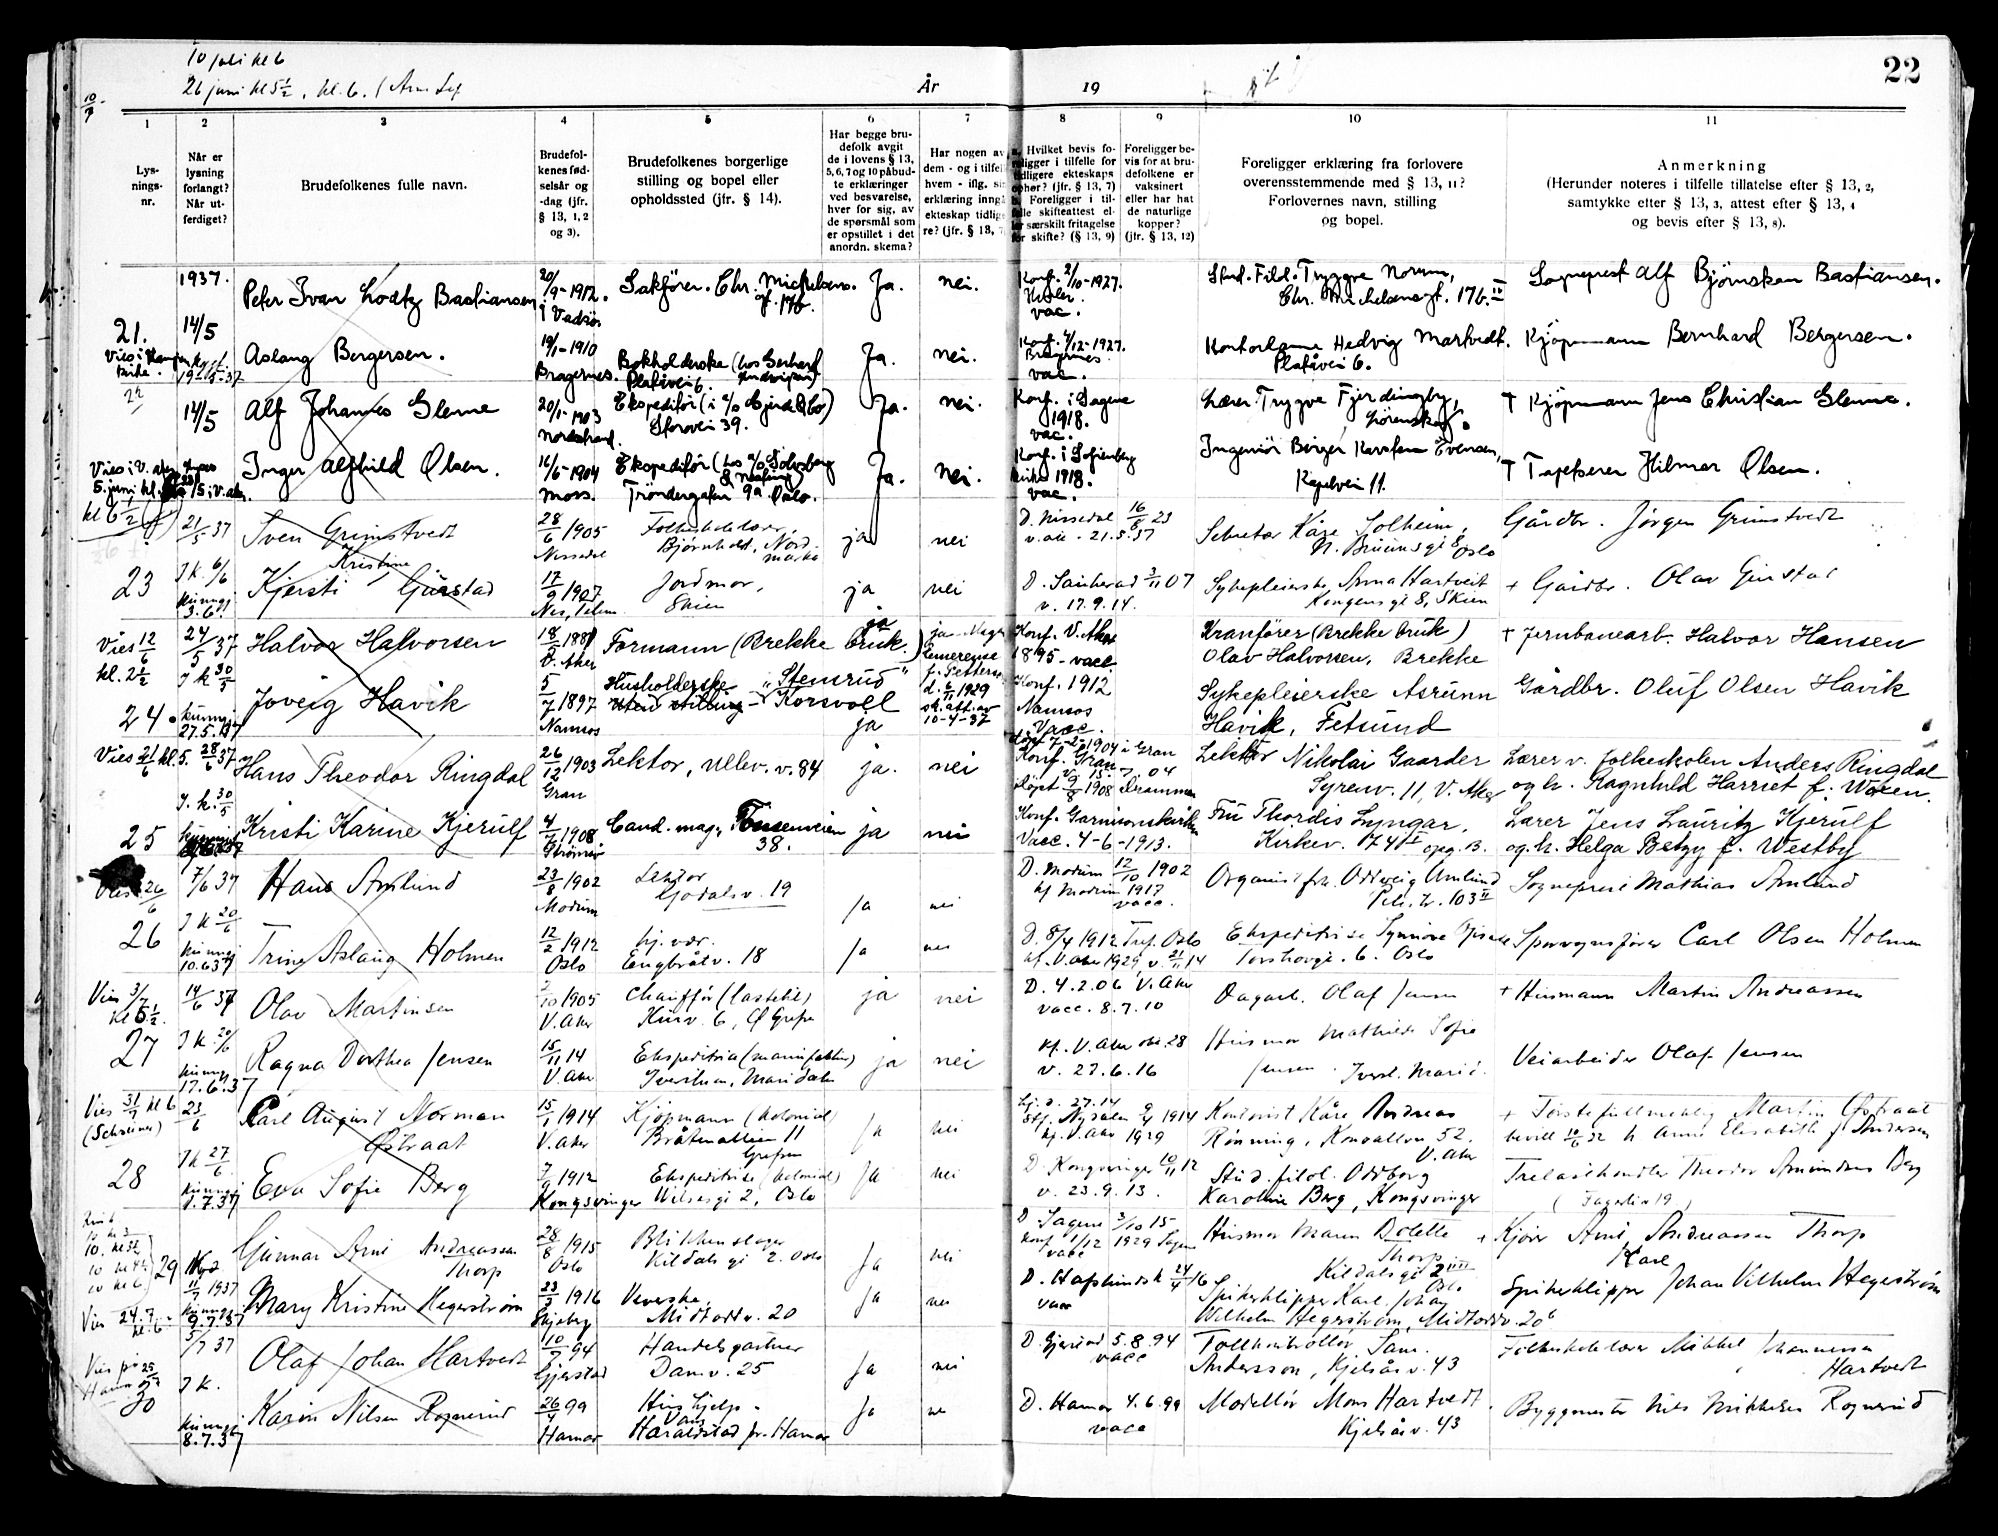 10 juli kl 6
26 juni kl 5½, kl. 6.
År
19
22
1
2
3
4
5
6
7
8
9
10
11
Lys-
nings-
nr.
Når er
lysning
forlangt?
Når ut-
ferdiget?
Brudefolkenes fulle navn.
Brudefol-
kenes fød-
selsår og
-dag (jfr.
§ 13, 1, 2
og 3).
Brudefolkenes borgerlige
stilling og bopel eller
opholdssted (jfr. § 14).
Har begge bru-
defolk avgit
de i lovens § 13,
5, 6, 7 og 10 påbud-
te erklæringer
ved besvarelse,
hver for sig, av
de spørsmål som
er opstillet i det
anordn. skema?
Har nogen av
dem - og i tilfelle
hvem - iflg. sin
erklæring inngå
ekteskap tidlige
re? (jfr. § 13, 7
Hvilket bevis fo-
religger i tilfelle for
tidligere ekteskaps
ophør? (jfr. § 13, 7)
b. Foreligger i til-
felle skifteattest el-
ler særskilt fritagelse
for skifte? (§ 13, 9)
Foreligger be-
vis for at bru-
defolkene er
vaksinert
eller har hat
de naturlige
kopper?
(jfr. § 13, 12)
Foreligger erklæring fra forlovere
overensstemmende med § 13, 11?
Forlovernes navn, stilling
og bopel.
Anmerkning
(Herunder noteres i tilfelle tillatelse efter § 13, 2,
samtykke efter § 13, 3, attest efter § 13, 4
og bevis efter § 13, 8).
1937.
21.
14/5
Peter Ivar Lodtz Bastiansen
20/9-1912.
i Vadsø
Sakfører. Chr. Michelsens-
gt. 17b.
Ja.
nei.
Konf. 2/10-1927.
vac.
Stud. Filol. Tryggve Norum,
Chr. Michelsensgt. 17b. II
Sogneprest Alf Bjørnskau Bastiansen.
Aslaug Bergersen.
19/1-1910
Bragernes.
Bokholderske (hos Gerhard
Platåvei 6.
Ja.
nei.
Konf. 4/12-1927.
Bragernes.
vac.
Kontordame Hedvig Martvedt.
Platåvei 6.
Kjøpmann Bernhard Bergersen.
22
14/5
Alf Johannes Glenne
20/1-1903
Nordstrand.
Ekspeditør
Storovei 39.
Ja.
nei.
Konf. i Sagene
1918.
vac.
Lærer Trygve Fjerdingby,
Lørenskog.
† Kjøpmann Jens Christian Glenne.
Vies i V. aker
5. juni kl.
Inger Alfhild Olsen.
16/6-1904
Moss.
Ekspeditør (hos
Trøndergaten 9a Oslo.
Ja.
nei.
Konf. i Sofienberg
kirke 1918.
vac.
Ingeniør Birger Karsten Evensen,
Kapelvei 11.
† Tapetserer Hilmar Olsen.
23
21/5 37
Sven Grimstvedt
28/6 1905
Nissedal
Folkeskolelærer,
Bjørnholt, Nord-
marka
ja
nei
D. Nissedal 16/8 23
v. att. - 21.5.37
Sekretær Kåre Solheim,
N. Bruunsgt 8, Oslo
Gårdbr. Jørgen Grimstvedt
J k 6/6
kunngj
3.6.
Kjersti Kristine Gjerstad
17/9 1907
Nes, Telem
Jordmor,
Skien
ja
nei
D. Sauherad 3/11 07
v. 17.9.14.
Sykepleierske Anna Hartveit
Kongensgt 8, Skien
+ Gårdbr. Olav Gjerstad
Vies 12/6
kl. 2½
24.
24/5 37
J k 30/5
kunngj
27.5.37
Halvor Halvorsen
18/5 1881
V. Aker
Formann (Brekke bruk.)
ja
d. 6/11 1929
10-4-37
Konf. V. Aker
1895 - vacc.
Kranfører (Brekke bruk)
Olav Halvorsen, Brekke
† Jernbanearb. Halvor Hansen
Joveig Havik
5/7 1897
Namsos
Husholderske "Stensrud"
Uten stilling - Korsvoll
ja
Konf. 1912
Namsos
Vacc.
Sykepleierske Asrunn
Havik, Fetsund
Gårdbr. Oluf Olsen Havik
Vies 21/6 kl. 5.
25
28/6 37
J. k. 30/5
Hans Theodor Ringdal
26/12 1903
Gran
Lektor, Ullev. v. 84
ja.
nei
døpt 7-2-1904 i Gran
Konf. Gran
Lektor Nikolai Gaarder
Syrenv. 11, V. Aker
Lærer v. folkeskolen Anders Ringdal
og h. Ragnhild Harriet f. Woxen.
Kristi Karine Kjerulf
4/7 1908
Strømsø
Cand. mag., Tåsenveien
38.
ja
nei
døpt 9/8 1908 Drammen
Konf. Garnisonskirken
Vacc. 4-6-1913.
Fru Thordis Lyngar,
Kirkev. 74 I opg. B.
Lærer Jens Lauritz Kjerulf
og h. Helga Betzy f. Westby
Vies 26/6
26
7/6 37
J k 20/6
kunngj
10.6.37
Hans Amlund
23/8 1902
Modum
Lektor
Godalsv. 19
ja
nei
D. Modum 12/10 1902
kf Modum 1917
vacc.
Organist frk. Oddveig Amlund
103 II
Sogneprest Mathias Amlund
Trine Aslaug Holmen
12/2 1912
Oslo
hj. vær.
Engbråtv. 18
ja
nei
D. 8/4 1912 Tref. Oslo
kf. V. Aker 1929, v. 21/11 14
Ekspeditrise Synnøve
Torshovgt. 6. Oslo
Sporvognsfører Carl Olsen Holmen
Vies 3/7
kl 6½.
27
14/6 37
J k 20/6
kunngj
17.6.37
Olav Martinsen
10 1905
V. Aker
Chauffør (lastebil)
Kurv. 6, Ø Grefsen
ja
nei
D. 4.2.06 V. Aker
vacc. 8.7.10
Dagarb. Olaf Jensen
+ Husmann Martin Andreassen
Ragna Dorthea Jensen
15/11 14
V. Aker
Ekspeditrise (manufaktur)
Maridalen
ja
nei
kf. V. Aker okt. 28
v. 27.6.16
Husmor Mathilde Sofie
Jensen.
Veiarbeider Olaf Jensen
Vies 31/7 kl 6
(Schreiner)
28
23/6
J k 27/6
kunngj
1.7.37
Carl August Norman
Østraat
15/1 1914
V. aker
Kjøpmann (kolonial)
Bråtenalleen 11
Grefsen
ja
nei
Nydalen 1914
kf. V. Aker 1929
Kontorist Kåre Andreas
Rønning, Konvallvn 52.
V. Aker
+ Førstefullmektig Martin Østraat
bevill 10/6 32 h. Anna Elisabeth f. Andersen
Eva Sofie Berg
7/9 1912
Kongsvinger
Ekspeditrise (kolonial)
Wilsesgt 2, Oslo
ja
nei
D. Kongsvinger 10/11 12
v. 23.9.13.
Stud. filol. Oddborg
Karoline Berg, Kongsvinger
Trelasthandler Theodor Amundsen Berg
(Fagerlia 19)
29
11/7 1937
kunngj
9.7.37
Gunnar Arne Andreassen
Thorp
28/8 1915
Oslo
Blikkenslager
Kildalsgt 2. Oslo
ja
nei
D. Sagene 3/10 15
konf 1/12 1929 Sagene
vacc
Husmor Maren Dolette
Thorp
Kildalsgt 2 III
Oslo
+ Kjører Arne Andreassen Thorp
Vies 24.7.
kl. 6.
Mary Kristine Hegerstrøm
23/3 1916
Skjeberg
Veverske,
Midtoddv. 20
ja
nei
D. Hafslunds k 24/4 16
vacc
Spikerklipper Karl Johan
Wilhelm Hegerstrøm, Midtoddv. 20 b
Karl
Spikerklipper Johan Vilhelm Hegerstrøm
Vies på
Hamar
30
5/7 37
J k.
kunngj
8.7.37
Olaf Johan Hartvedt
10/7 94
Gjerstad
Handelsgartner
Damv. 25
ja
nei
D. Gjerstad 5.8.94
vacc
Tollkontrollør Sam.
Andersson, Kjelsåsv. 43
Folkeskolelærer Mikkel Johannessen
Hartvedt
Karen Nilsen Rognerud
26/4 99
Hamar
Hushjelp.
Vang
Haraldstad pr. Hamar
ja
nei
D. Hamar 4.6.99
vacc
Modellør Mons Hartvedt.
Kjelsåsv. 43
Byggmester Nils Mikkelsen Rognerud